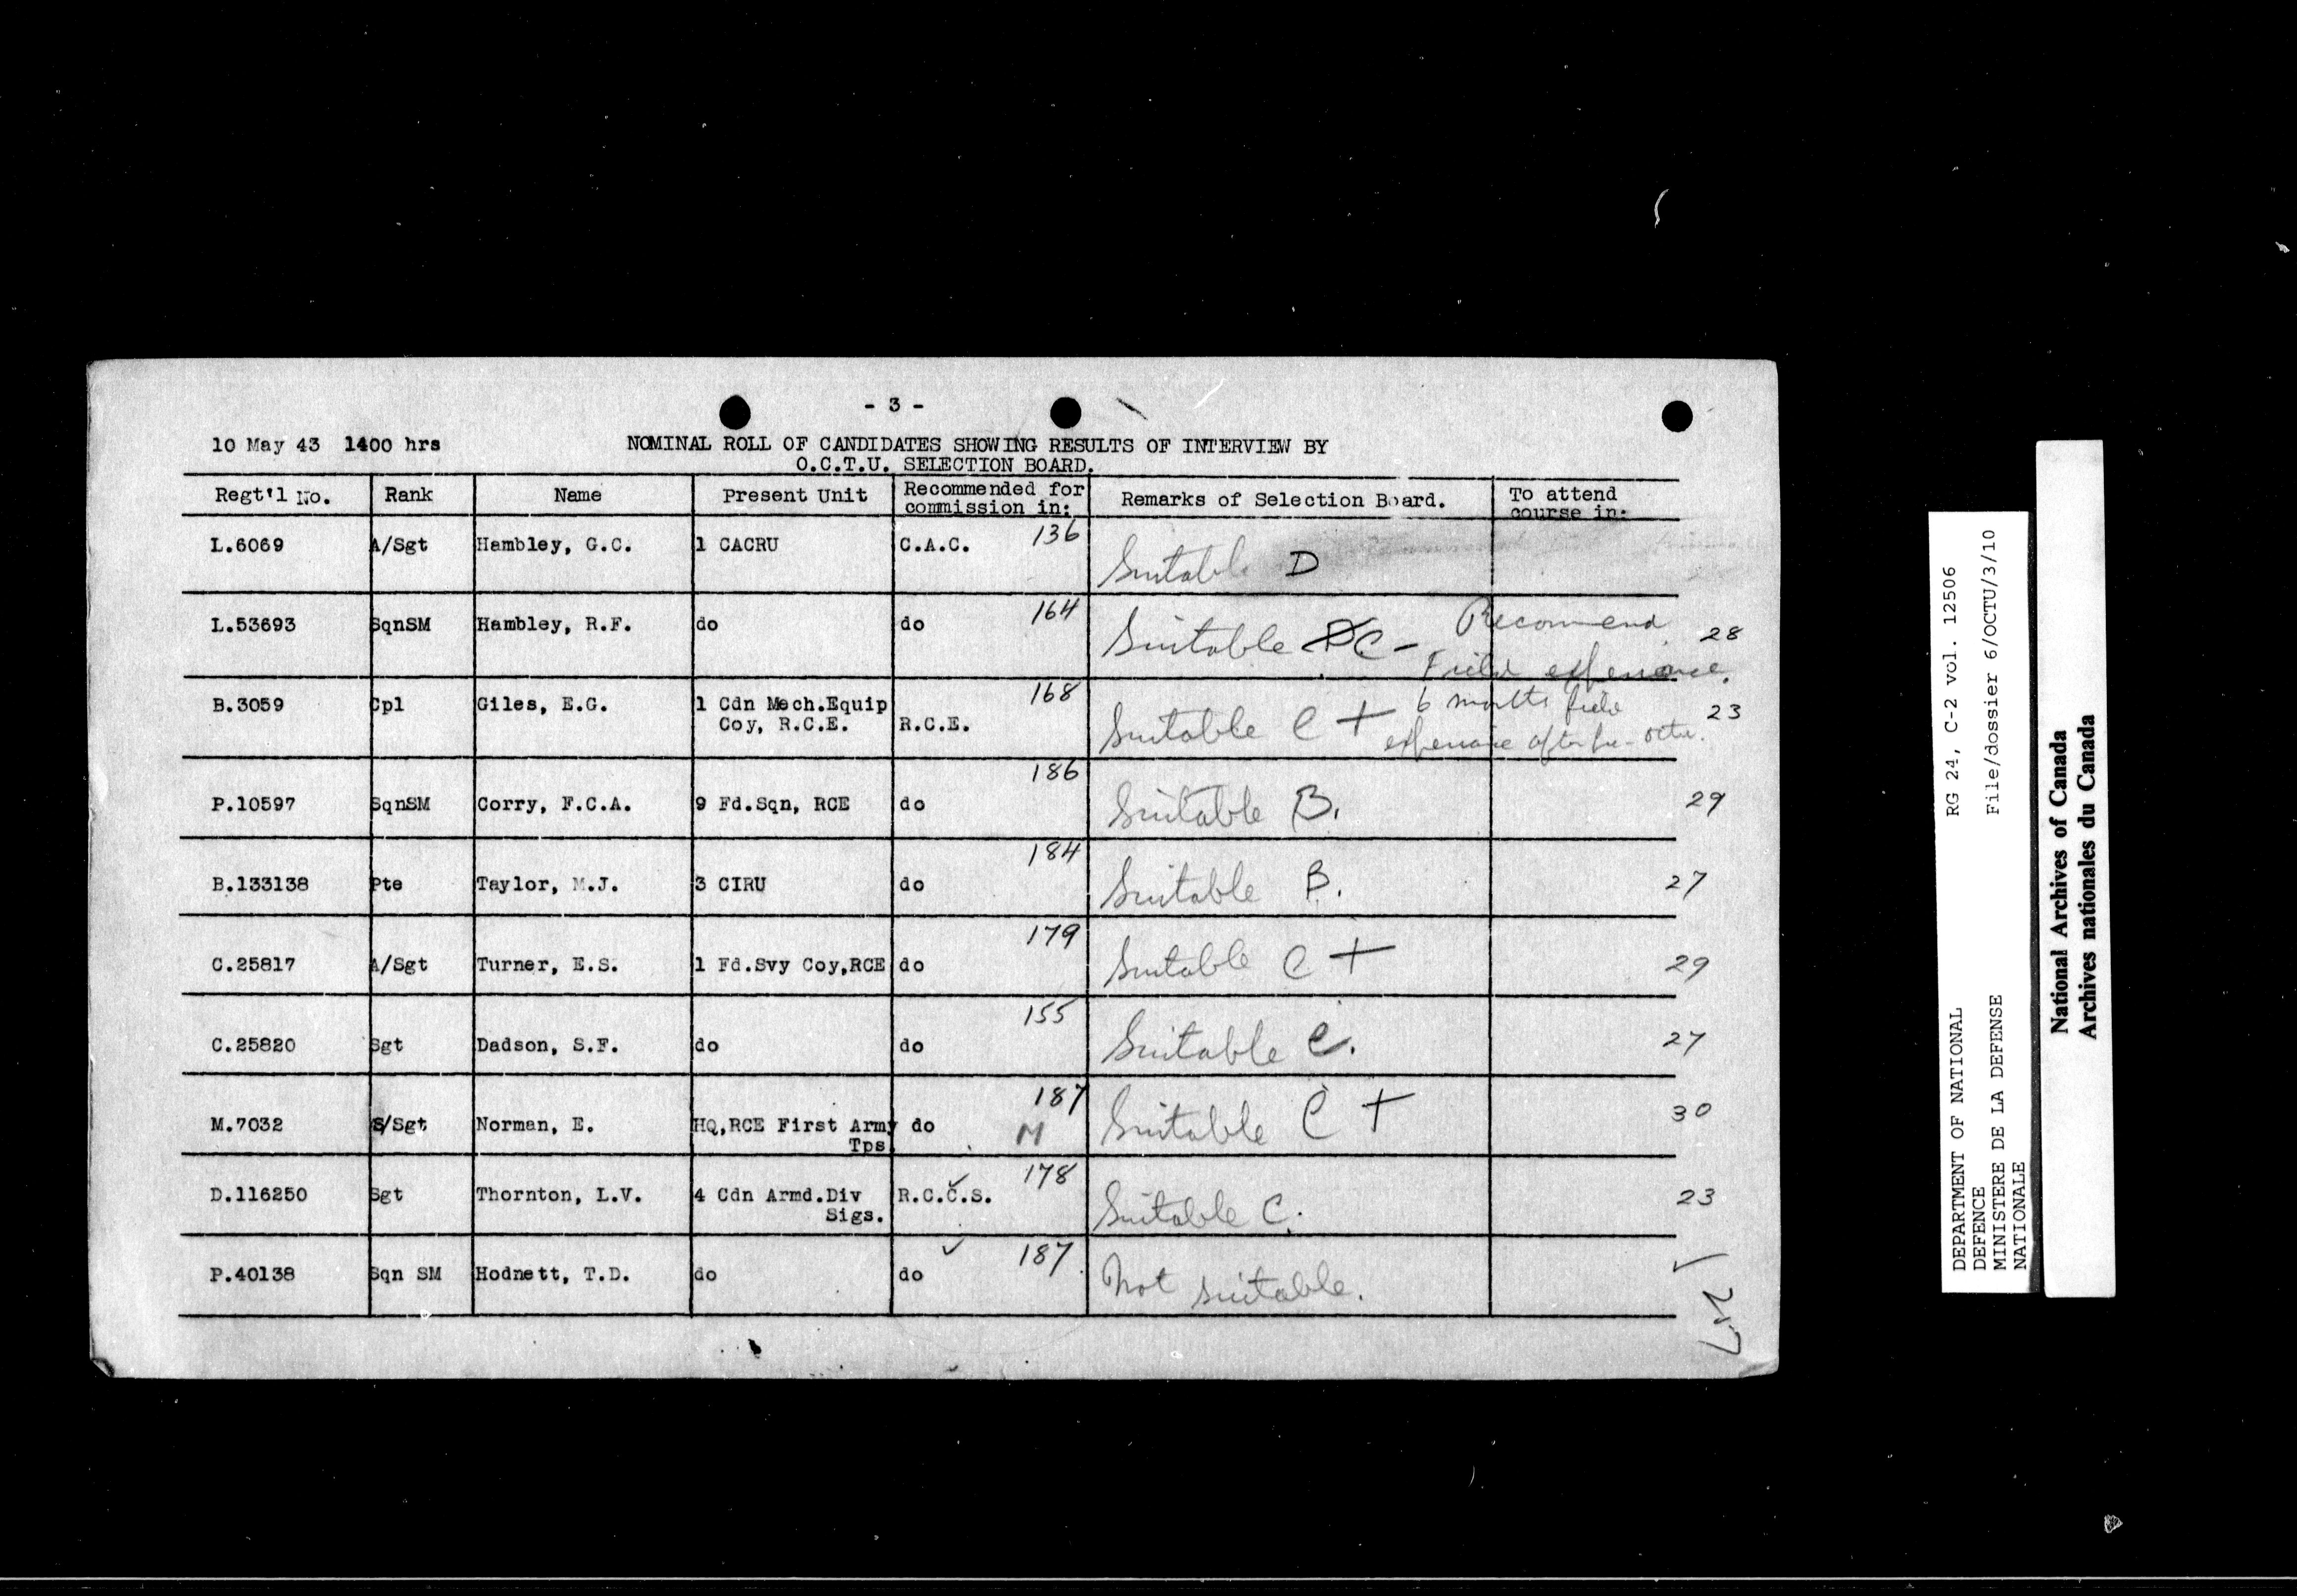 - 3 -
10 May 43 1400 hrs NOMINAL ROLL OF CANDIDATES SHOWING RESULTS OF INTERVIEW BY
O.C.T.U. SELECTION BOARD.
Regt'l No. Rank Name Present Unit Recommended for commission in: Remarks of Selection Board. To attend course in:
L.6069 A/Sgt Hambley, G.C. 1 CACRU C.A.C. 136 Suitable D
L.53693 SqnSM Hambley, R.F. do do 164 Suitable C - Recommend 28
Field experience.
B.3059 Cpl Giles, E.G. 1 Cdn Mech.Equip 168 Suitable C + 6 months field 23
Coy, R.C.E. R.C.E. experience after pre-octu.
P.10597 SqnSM Corry, F.C.A. 9 Fd.Sqn, RCE do 186 Suitable B. 29
B.133138 Pte Taylor, M.J. 3 CIRU do 184 Suitable B. 27
C.25817 A/Sgt Turner, E.S. 1 Fd.Svy Coy,RCE do 179 Suitable C + 29
C.25820 Sgt Dadson, S.F. do do 155 Suitable C. 27
M.7032 S/Sgt Norman, E. HQ,RCE First Army do 187 M Suitable C + 30
Tps
D.116250 Sgt Thornton, L.V. 4 Cdn Armd.Div R.C.C.S. 178 Suitable C. 23
Sigs.
P.40138 Sqn SM Hodnett, T.D. do do 187 Not suitable.
DEPARTMENT OF NATIONAL RG 24, C-2 vol. 12506
DEFENCE File/dossier 6/OCTU/3/10
MINISTERE DE LA DEFENSE
NATIONALE
National Archives of Canada
Archives nationales du Canada